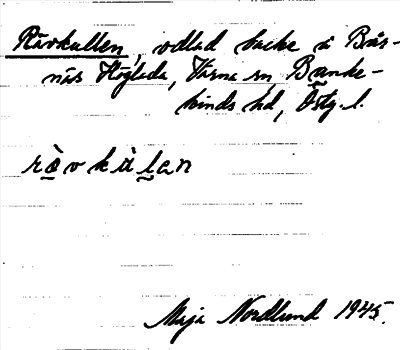 Rävkullen, odlad backe å Brås-
näs Höglada, Värna sn, Banke-
kinds hd, Östg. l.
rävkulen
Maja Nordlund 1945.